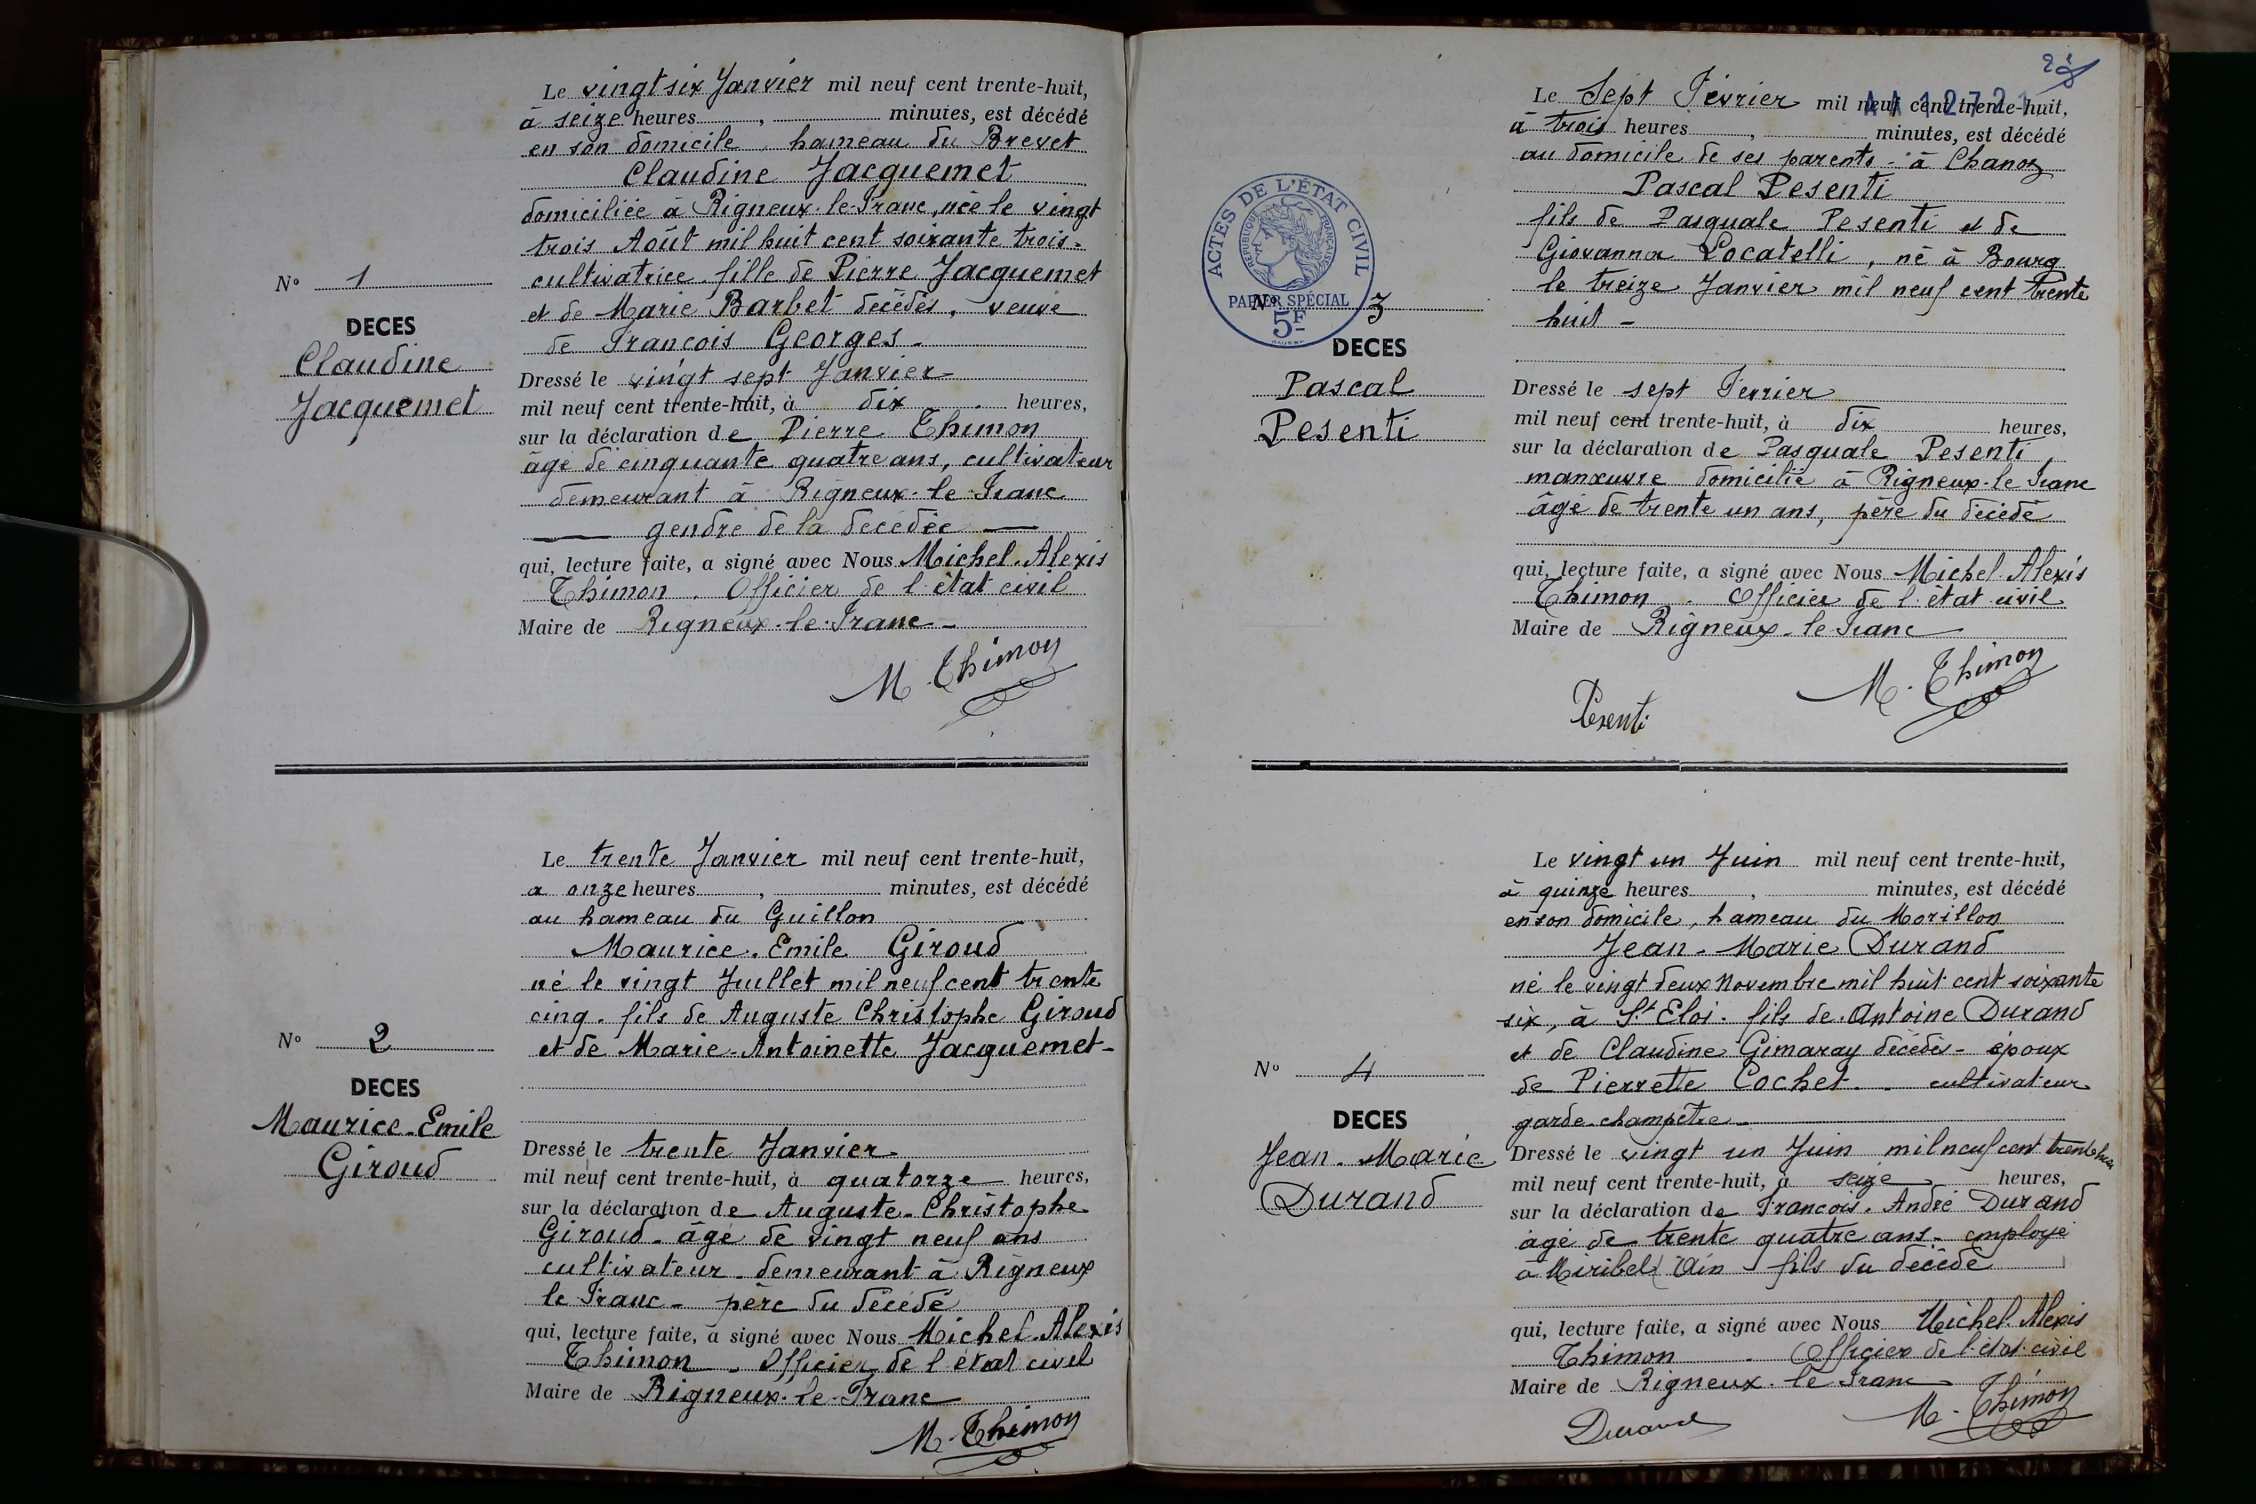 Le vingt six Janvier mil neuf cent trente-huit,
à seize heures , minutes, est décédé
en son domicile, hameau du Brevet
Claudine Jacquemet
domiciliée à Rigneux-le-Franc, née le vingt
trois Août mil huit cent soixante trois -
cultivatrice, fille de Pierre Jacquemet
et de Marie Barbet décédés, veuve
de François Georges -
N° 1
DECES
Claudine
Jacquemet
Dressé le vingt sept Janvier
mil neuf cent trente-huit, à dix heures,
sur la déclaration de Pierre Thimon
âgé de cinquante quatre ans, cultivateur
demeurant à Rigneux-le-Franc
gendre de la décédée
qui, lecture faite, a signé avec Nous Michel-Alexis
Thimon . Officier de l'état civil
Maire de Rigneux-le-Franc -
M. Thimon
Le trente Janvier mil neuf cent trente-huit,
a onze heures , minutes, est décédé
au hameau du Guillon
Maurice-Emile Giroud
né le vingt Juillet mil neuf cent trente
cinq - fils de Auguste Christophe Giroud
et de Marie-Antoinette Jacquemet -
N° 2
DECES
Maurice-Emile
Giroud
Dressé le trente Janvier -
mil neuf cent trente-huit, à quatorze heures,
sur la déclaration de Auguste-Christophe
Giroud - âgé de vingt neuf ans
cultivateur - demeurant à Rigneux
le Franc - père du décédé
qui, lecture faite, a signé avec Nous Michel-Alexis
Thimon - Officier de l'état civil
Maire de Rigneux-le-Franc
M. Thimon
Le Sept Février mil neuf cent trente-huit,
à trois heures , minutes, est décédé
au domicile de ses parents - à Chanoz
Pascal Pesenti
fils de Pasquale Pesenti et de
Giovanna Locatelli, né à Bourg
le treize Janvier mil neuf cent trente
huit -
ACTES DE L'ÉTAT CIVIL
RÉPUBLIQUE FRANÇAISE
PAPIER SPÉCIAL
5F
N° 3
DECES
Pascal
Pesenti
Dressé le sept Février
mil neuf cent trente-huit, à dix heures,
sur la déclaration de Pasquale Pesenti
manœuvre domicilié à Rigneux-le Franc
âgé de trente un ans, père du décédé
qui, lecture faite, a signé avec Nous Michel-Alexis
Thimon . Officier de l'état civil
Maire de Rigneux-le-Franc
M. Thimon
Pesenti
Le vingt un Juin mil neuf cent trente-huit,
à quinze heures , minutes, est décédé
en son domicile, hameau du Morillon
Jean-Marie Durand
né le vingt deux Novembre mil huit cent soixante
six, à St Eloi - fils de Antoine Durand
et de Claudine Gimaray décédés - époux
de Pierrette Cochet - cultivateur
garde-champêtre -
N° 4
DECES
Jean-Marie
Durand
Dressé le vingt un Juin mil neuf cent trente huit
mil neuf cent trente-huit, à seize heures,
sur la déclaration de François-André Durand
âgé de trente quatre ans - employé
à Miribel (Ain) fils du décédé
qui, lecture faite, a signé avec Nous Michel-Alexis
Thimon . Officier de l'état-civil
Maire de Rigneux-le Franc
Durand
M. Thimon